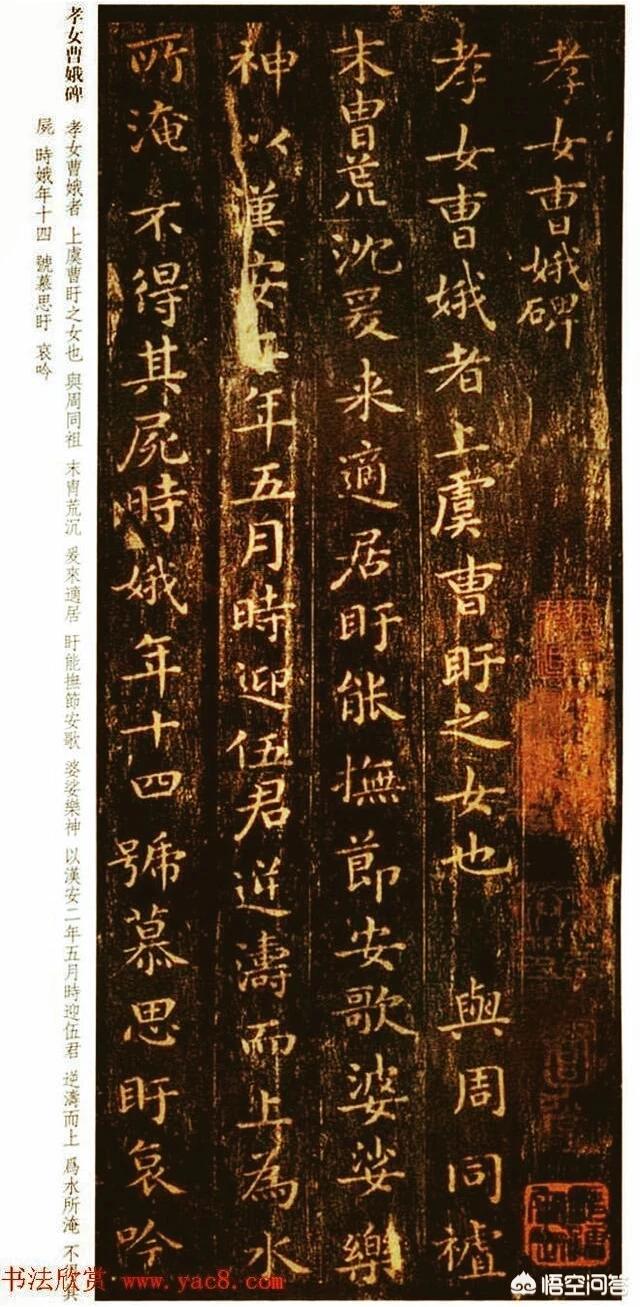 孝女曹娥碑
孝女曹娥者上虞曹盱之女也 與周同祖
末冑荒沈爰来適居盱能撫節安歌婆娑樂
神以漢安二年五月時迎伍君逆濤而上為水
所淹 不得其屍時娥年十四號慕思盱哀吟
孝女曹娥碑
孝女曹娥者 上虞曹盱之女也 與周同祖 末冑荒沉 爰來適居 盱能撫節安歌 婆娑樂神 以漢安二年五月時迎伍君 逆濤而上 爲水所淹 不得其
屍 時娥年十四 號慕思盱 哀吟
书法欣赏 www.yac8.com
悟空问答